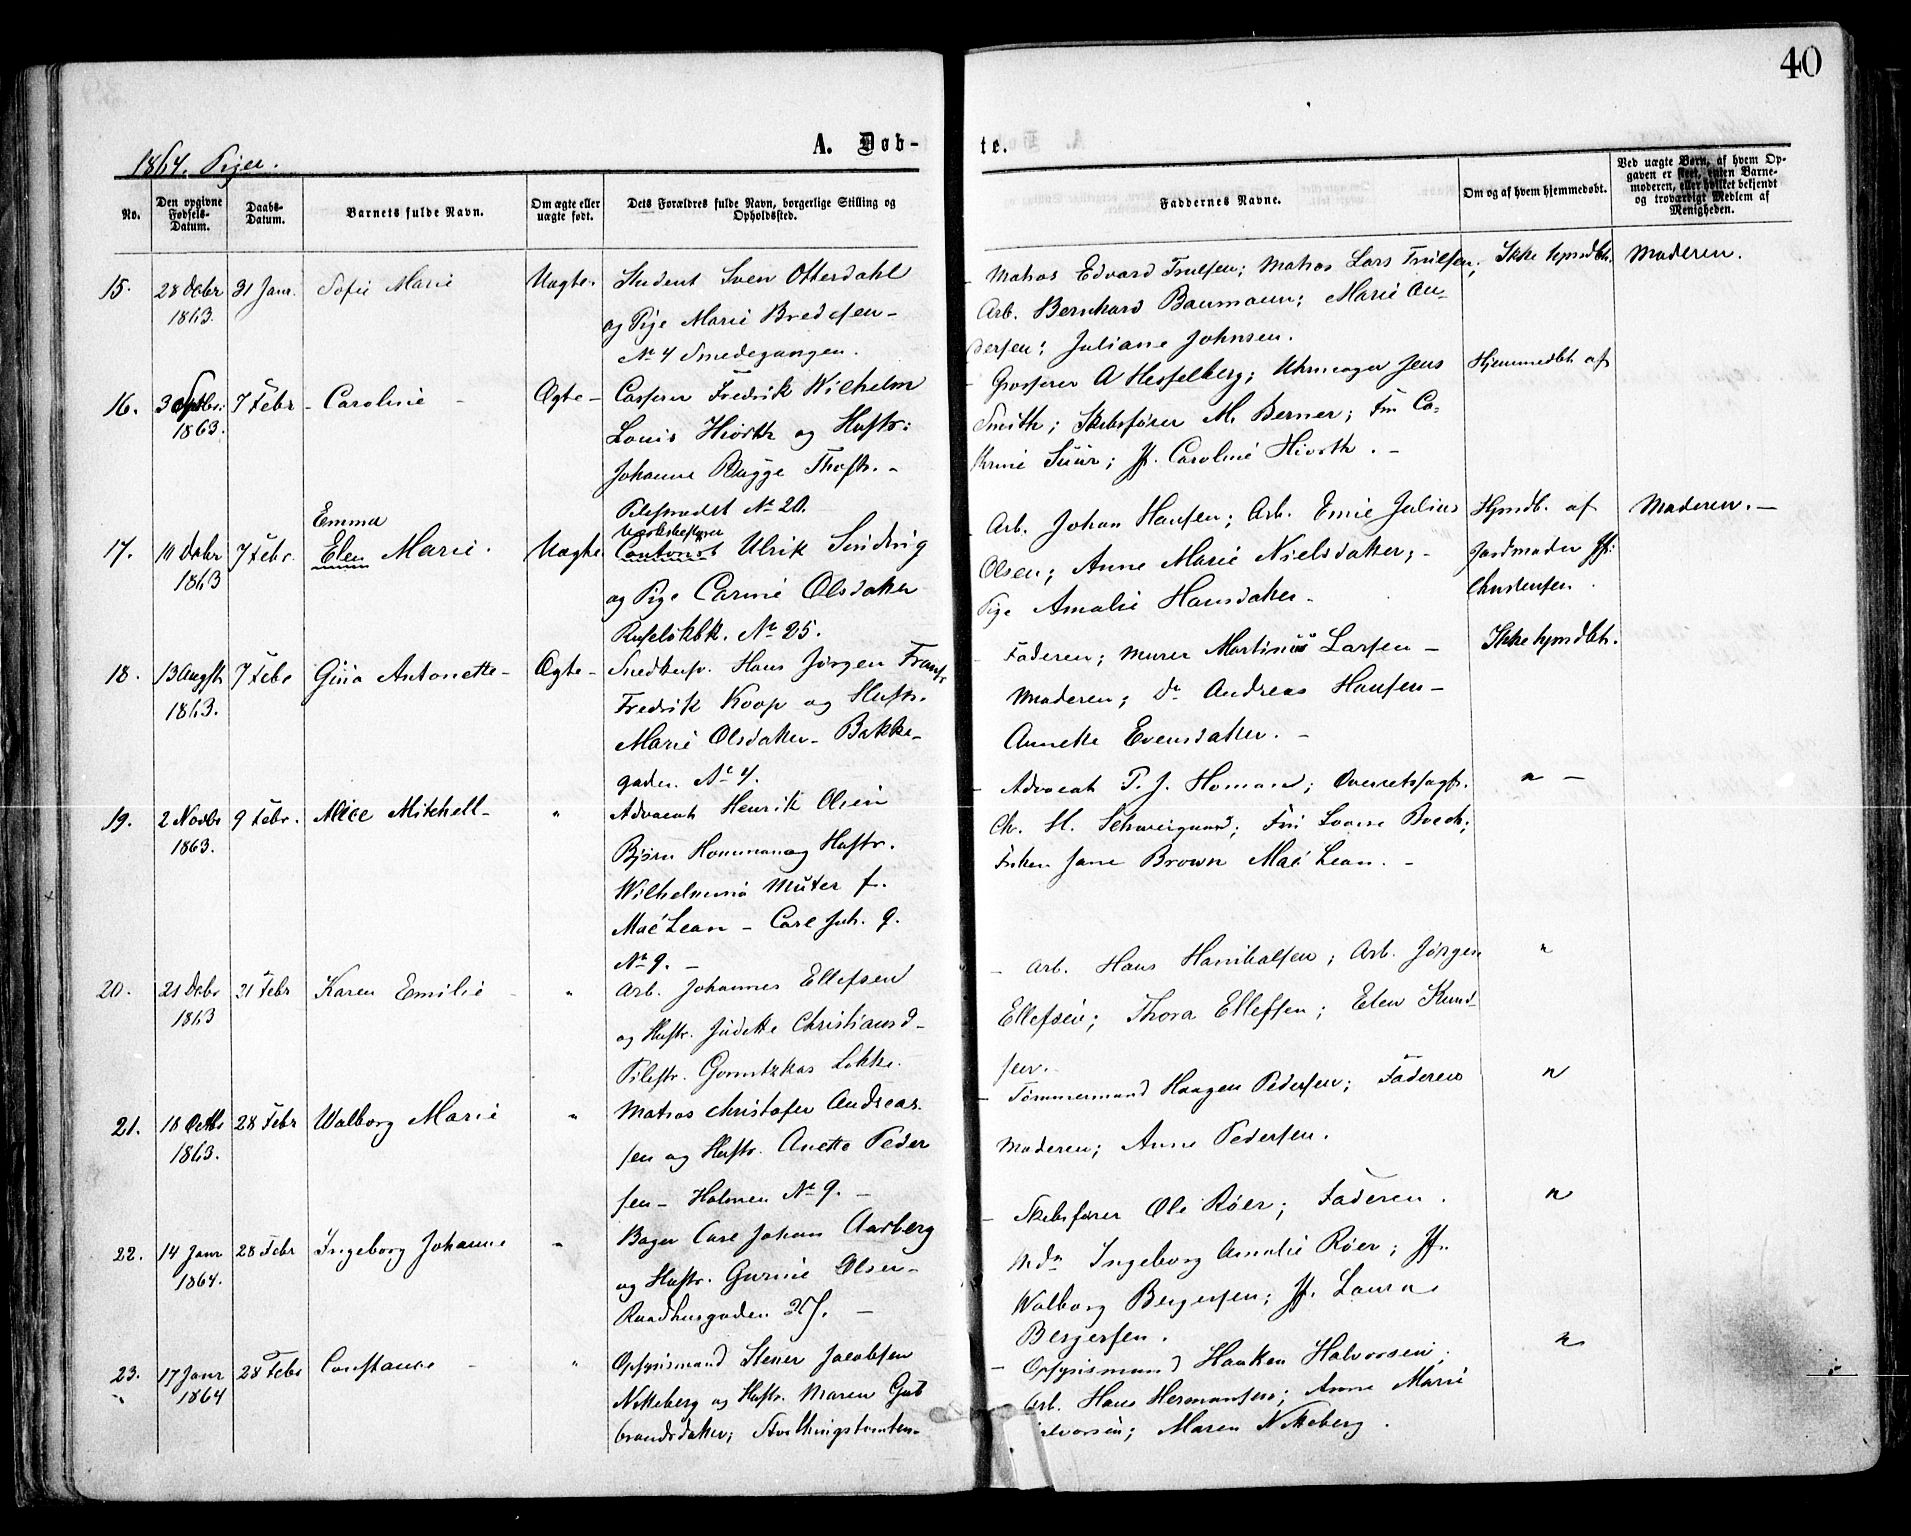 40
A. Døb-
te.
1864. Piger.
No.
Den opgivne Fødsels-Datum.
Daabs-Datum.
Barnets fulde Navn.
Om ægte eller uægte født.
Dets Forældres fulde Navn, borgerlige Stilling og Opholdssted.
Faddernes Navne.
Om og af hvem hjemmedøbt.
Ved uægte Børn, af hvem Opgaven er skeet, enten Barnemoderen, eller hvilket bekjendt og troværdigt Medlem af Menigheden.
15. 28 Decbr 31 Janr. Sofie Marie Uægte. Student Sven Otterdahl
1863. og Pige Marie Bredesen -
No 4 Smedegangen.
Matros Edvard Trulsen; Matros Lars Trulsen; Ikke hjmdbt. Moderen.
Arb. Bernhard Baumann; Marie An-
dersen; Juliane Johnsen.
16. 3 Septbr. 7 Febr - Caroline - Ægte - Casserer Fredrik Wilhelm
1863. Louis Hiorth og Hustr:
Johanne Bugge Thoftr. -
Pilestrædet No 20.
- Grosserer A Hesselberg; Uhrmager Jens Hjemmedbt af
Smith; Skibsfører M. Berner; Fru Ca-
thrine Suur; Jf. Caroline Hiorth. -
Emma
17. 11 Decbr 7 Febr. Elen Marie. Uægte Værksbestyrer
1863 Contorist Ulrik Sindvig
og Pige Carine Olsdatter
Ruseløkbk. No 25.
Arb. Johan Hansen; Arb. Emil Julius Hjmdb. af Moderen. -
Olsen; Anne Marie Nielsdatter; - Jordmoder Jf:
Pige Amalie Hansdatter. Christensen.
18. 13 Augst 7 Febr Gina Antonette - Ægte - Snedkersv. Hans Jørgen Frans
1863. Fredrik Koop og Hustr.
Marie Olsdatter - Bakke-
gaden. No 4.
- Faderen; Murer Martinus Larsen - Ikke hjmdbt.
Moderen; Do Andreas Hansen -
Annette Evensdatter. -
19. 2 Novbr 9 Febr. Alice Mitchell - " Advocat Henrik Olsen
1863. Bjørn Homman og Hustr.
Wilhelmina Muter f.
Mac Lean - Carl Joh. G.
No 9. -
- Advocat P. J. Homan; Overretssagf. " -
Ch. H. Schweigaard; Fru Lovise Boeck;
Frøken Jane Brown Mac Lean. -
20. 21 Decbr 21 Febr Karen Emilie - " Arb. Johannes Ellefsen
1863 og Hustr. Judette Christiansd -
Pilestr. Løkke.
- Arb. Hans Hanibalsen; Arb. Jørgen "
Ellefsen; Thora Ellefsen; Elen Knud-
sen. -
21. 18 Octbr 28 Febr Walborg Marie " Matros Christofer Andreas-
1863. sen og Hustr. Anette Peder
sen - Holmen No 9. -
- Tømmermand Haagen Pedersen; Faderen "
Moderen; Anne Pedersen.
22. 14 Janr 28 Febr Ingeborg Johanne " Bager Carl Johan Aarberg
1864. og Hustr. Gurine Olsen -
Raadhusgaden 27. -
- Skibsfører Ole Røer; Faderen. "
Mdm Ingeborg Amalie Røer; Jf.
Walborg Bergersen; Jf. Laura
Bergersen.
23. 17 Janr 28 Febr Constance - " Opsynsmand Stener Jacobsen
1864 Nikeberg og Hustr. Maren Gul
brandsdatter; Storthingstomten -
- Opsynsmand Haaken Halvorsen; "
Arb. Hans Hermansen; Anne Marie
Halvorsen; Maren Nikeberg.